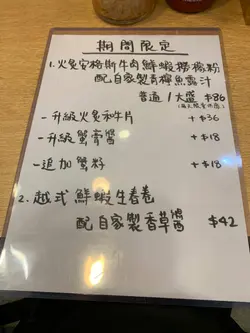 期間限定
1. 火炙安格斯牛肉鮮蝦撈檬粉
配自家製青檸魚露汁
普通 / 大盛 $86
-升級火炙和牛片 + $36
-升級蟹膏醬 + $18
-追加蟹籽 + $18
2. 越式鮮蝦生春卷
配自家製香草醬 $42